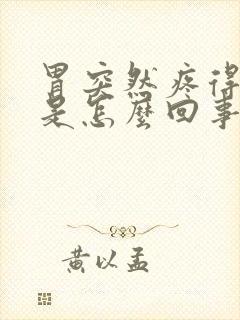 胃突然疼得
是怎麼回事
黄以孟